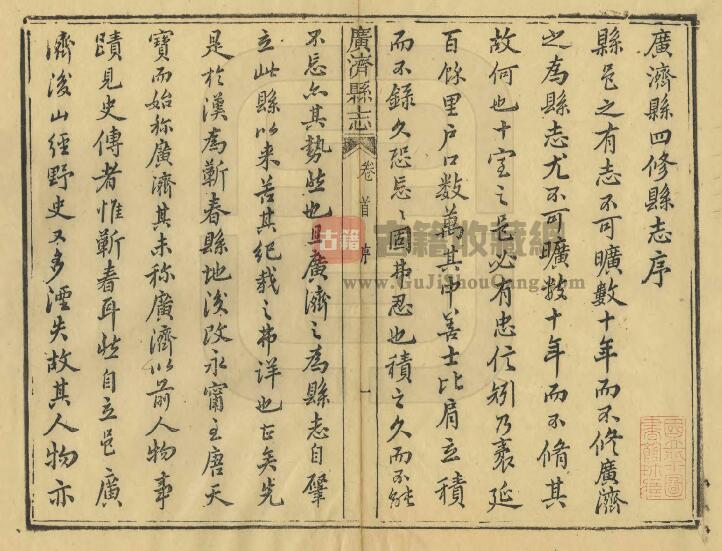 廣濟縣四修縣志序
縣邑之有志不可曠數十年而不修廣濟
之爲縣志尤不可曠數十年而不脩其
故何也十室之邑必有忠信矧乃袤延
百餘里戶口數萬其中善士比肩立積
而不錄久恐忘〻固弗忍也積之久而不能
廣濟縣志 卷首 序 一
不忘亦其勢然也且廣濟之爲縣志自肇
立此縣以来苦其紀載之弗詳也矣先
是於漢爲蘄春縣地後改永甯至唐天
寶而始称廣濟其未称廣濟以前人物事
蹟見史傳者惟蘄春耳然自立邑廣
濟後山經野史又多湮失故其人物亦
古籍 古籍收藏網
www.GuJiShouCang.com